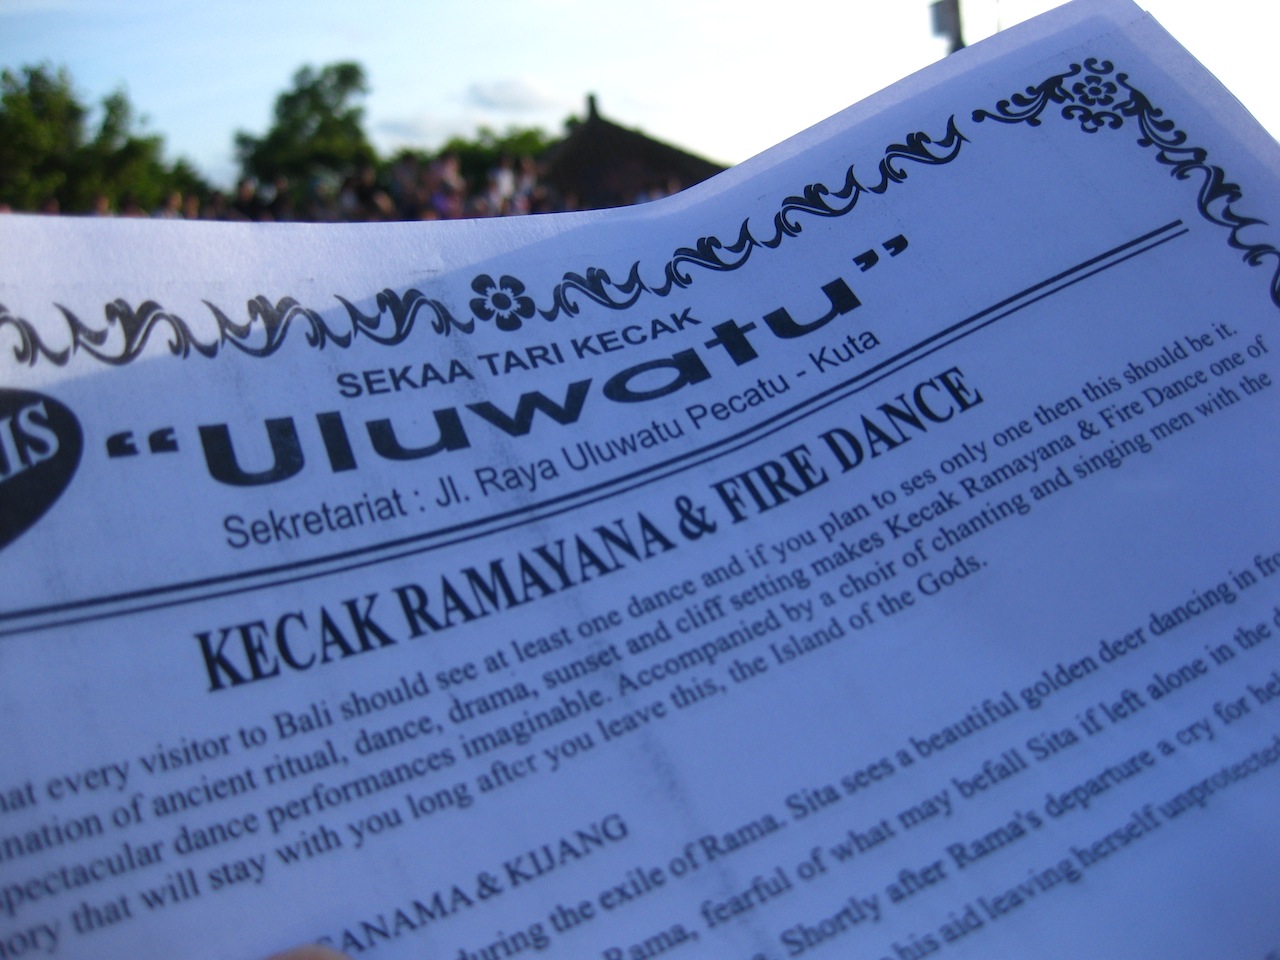 SEKAA TARI KECAK
“Uluwatu”
Sekretariat : Jl. Raya Uluwatu Pecatu - Kuta
KECAK RAMAYANA & FIRE DANCE
every visitor to Bali should see at least one dance and if you plan to ses only one then this should be it.
of ancient ritual, dance, drama, sunset and cliff setting makes Kecak Ramayana & Fire Dance one of
spectacular dance performances imaginable. Accompanied by a choir of chanting and singing men with the
that will stay with you long after you leave this, the Island of the Gods.
ANAMA & KIJANG
during the exile of Rama. Sita sees a beautiful golden deer dancing in
Rama, fearful of what may befall Sita if left alone in the
Shortly after Rama's departure a cry for
his aid leaving herself unprotected